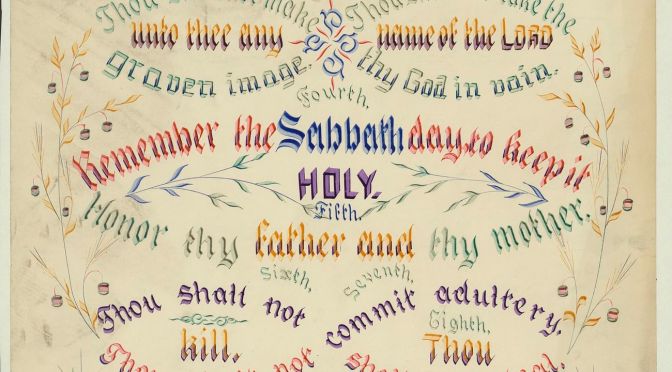 Thou shalt not make
unto thee any
graven image.
Thou shalt not take the
name of the LORD
thy God in vain.
Fourth,
Remember the Sabbath day, to keep it
HOLY.
Fifth,
Honor thy father and thy mother.
Sixth,
Thou shall not
kill.
Seventh,
commit adultery.
Eighth,
Thou
Thou
not